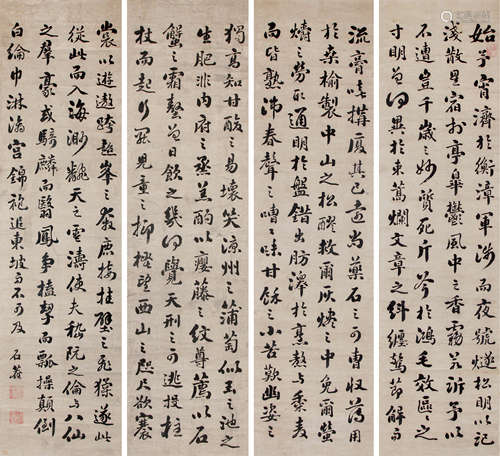 始予宵濟於衡漳涉而夜號燧松明以記
淺散星宿於亭皋鬱風中之香霧若訴予以
不遭豈千歲之妙質死斤斧於鴻毛效區區之
寸明曾何異於束蒿爛文章之糾纏驚節解而
流膏嘻構廈其已遠尚藥石之可曹收薄用
於桑榆製中山之松醪救爾灰燼之中免爾螢
爝之勞取通明於盤錯出肪澤於烹熬與黍麥
而皆熟沸舂聲之嘈嘈味甘餘之小苦歎幽姿之
獨高知甘酸之易壞笑涼州之蒲萄似玉池之
生肥非內府之烝羔酌以癭藤之紋尊薦以石
蟹之霜螯曾日飲之幾何覺天刑之可逃投柱
杖而起行罷兒童之抑搔望西山之咫尺欲褰
裳以遊遨跨超峯之奔鹿接挂壁之飛猱遂
從此而入海渺翻天之雲濤使夫嵇阮之倫與八仙
之群豪或騎麟而翳鳳爭榼挈而瓢操顛倒
白綸巾淋漓宮錦袍追東坡而不可及 石菴